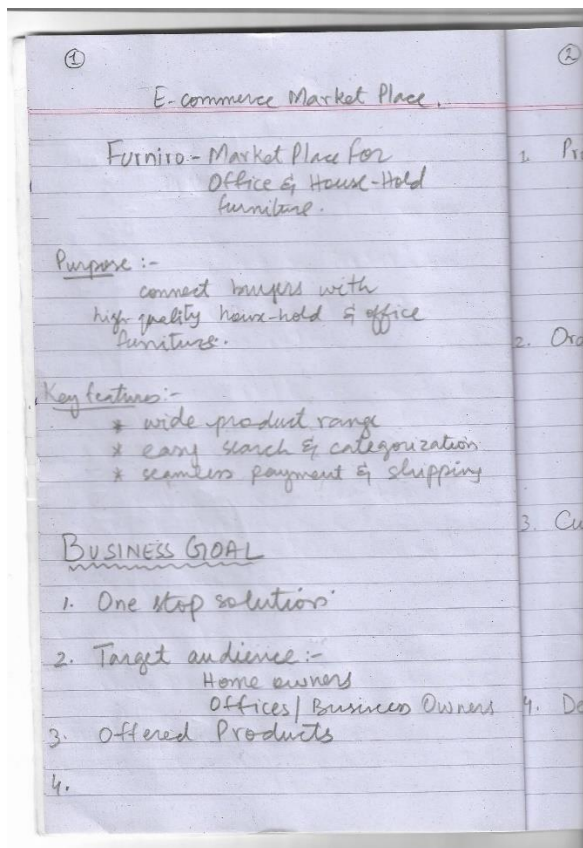 ①
E-commerce Market Place.
Furniro:- Market Place for
Office & House-Hold
furniture.
Purpose :-
connect buyers with
high-quality house-hold & office
furniture.
Key features:-
* wide product range
* easy search & categorization
* seamless payment & shipping
BUSINESS GOAL
1. One stop solution
2. Target audience:-
Home owners
Offices/Business Owners
3. Offered Products
4.
②
1. Pr
2. Ord
3. Cu
4. De